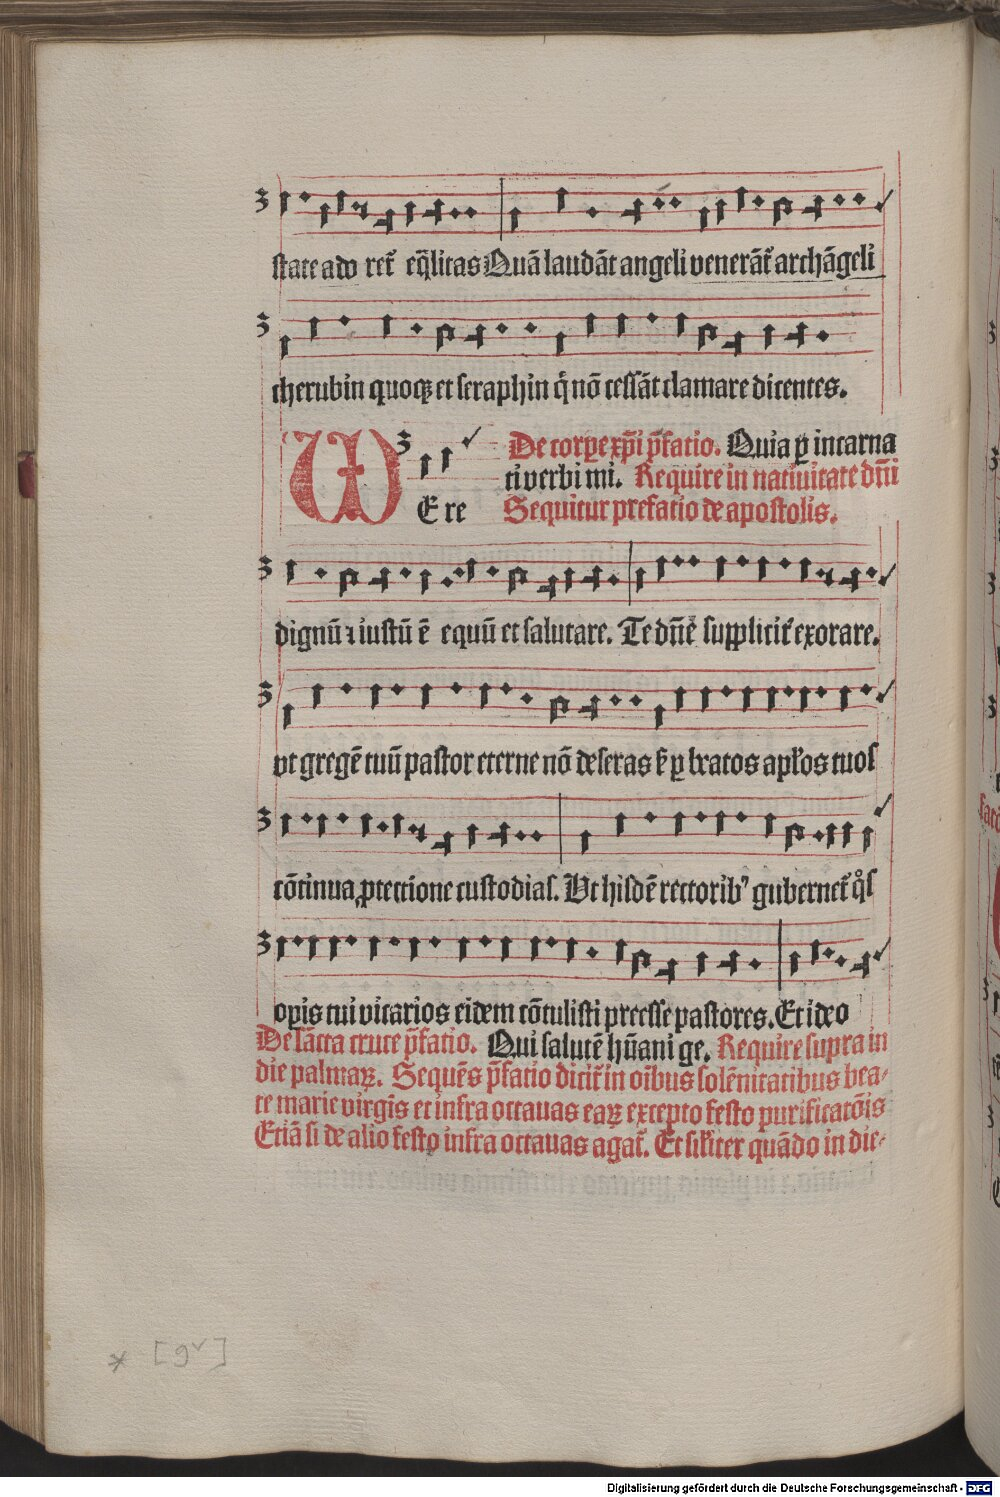 state ado ret᷑ eq̄litas Quā laudāt angeli venerāt᷑ archāgeli
cherubin quoqꝫ et seraphin q̄ nō cessāt clamare dicentes.
De corꝑe xp̄i p̄fatio. Quia ꝑ incarna
ti verbi mi. Require in natiuitate dn̄i
W Ere Sequitur prefatio de apostolis.
dignū ⁊ iustū ē equū et salutare. Te dn̄e suppliciť exorare.
vt gregē tuū pastor eterne nō deseras sꝫ ꝑ beatos apl̓os tuos
cōtinua ꝓtectione custodias. Ut hisdē rectoribꝰ gubernet᷑ q̊s
oꝑis tui vicarios eidem cōtulisti preesse pastores. Et ideo
De sācta cruce p̄fatio. Qui salutē hūani ge. Require supra in
die palmaꝝ. Sequēs p̄fatio dicit᷑ in oībus solēnitatibus bea⸗
te marie virgīs et infra octauas eaꝝ excepto festo purificatōis
Etiā si de alio festo infra octauas agat᷑. Et silɨter quādo in die⸗
* [9v]
Digitalisierung gefördert durch die Deutsche Forschungsgemeinschaft - DFG